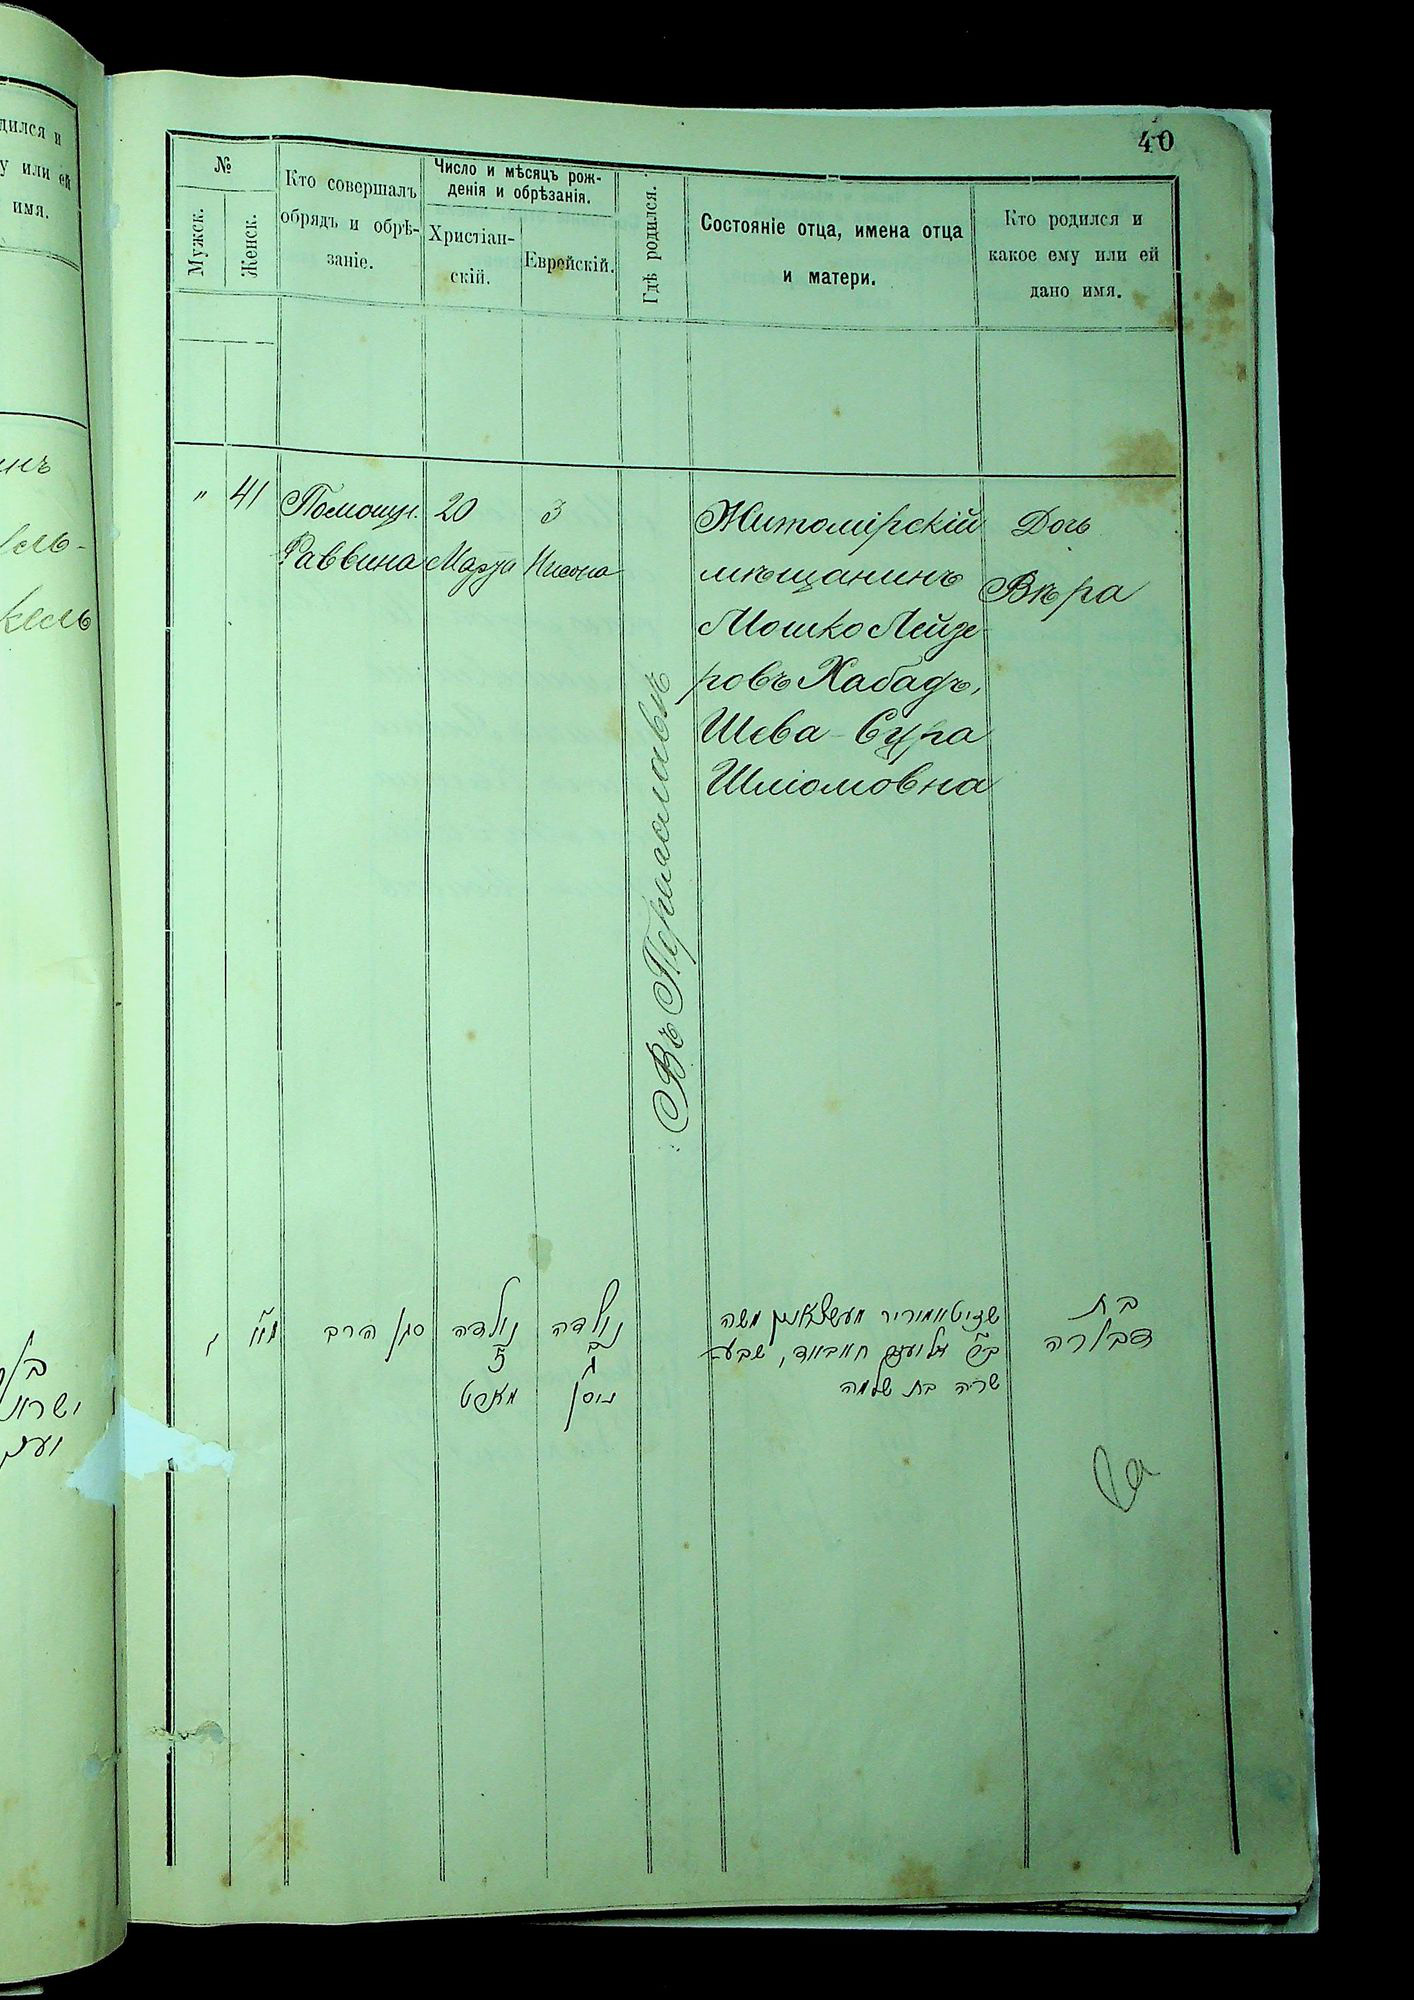 дился и
у или ей
имя.
40
№
Мужск.
Женск.
Кто совершалъ
обрядъ и обрѣ-
заніе.
Число и мѣсяцъ рож-
денія и обрѣзанія.
Христіан-
скій.
Еврейскій.
Гдѣ родился.
Состояніе отца, имена отца
и матери.
Кто родился и
какое ему или ей
дано имя.
"
41
Помощн.
Раввина
20
Марта
3
Нисона
Въ Переяславѣ
Житомірскій
мѣщанинъ
Мошко Лейзе-
ровъ Хабадъ,
Шева-Сура
Шліомовна
Дочь
Вѣра
סגן הרב
נולדה
מארט
נולדה
ג
ניסן
משה
שבע
שרה בת שלמה
בת
דבורה